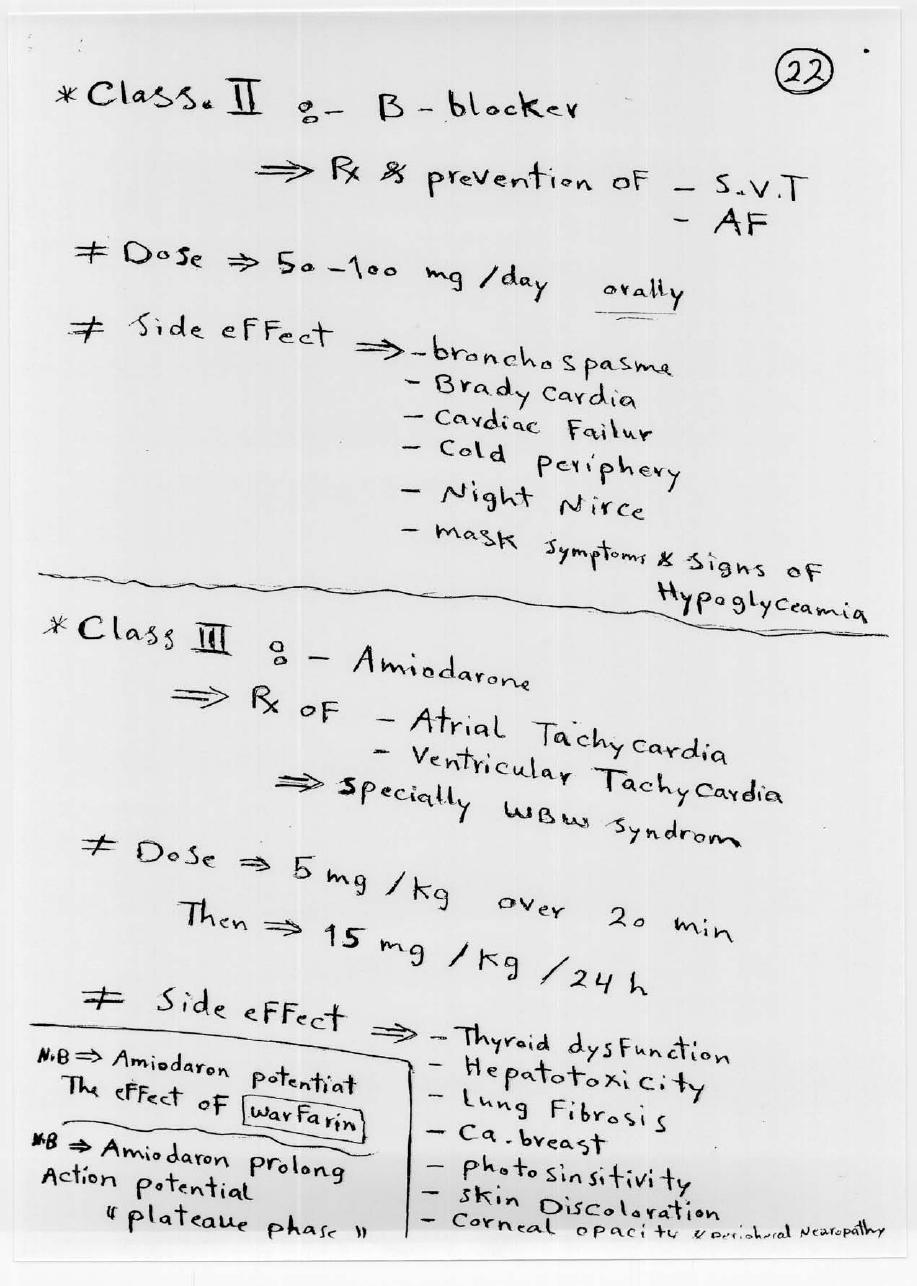 22
* Class. II :- B - blocker
⇒ Rx & prevention oF - S.V.T
- AF
≠ Dose ⇒ 50 - 100 mg / day orally
≠ Side eFFect ⇒ - bronchospasme
- Brady cardia
- Cardiac Failur
- Cold periphery
- Night Nirce
- mask symptoms & signs oF
Hypoglyceamia
* Class III :- Amiodarone
⇒ Rx oF - Atrial Tachy cardia
- Ventricular Tachy Cardia
⇒ specially WBW syndrom
≠ Dose ⇒ 5 mg / kg over 20 min
Then ⇒ 15 mg / kg / 24 h
≠ Side eFFect ⇒ - Thyroid dysFunction
- Hepatotoxicity
- Lung Fibrosis
- Ca. breast
- photosinsitivity
- skin Discoloration
- Corneal opacity & peripheral Nearopathy
N.B ⇒ Amiodaron potentiat
The eFFect oF warFarin
N.B ⇒ Amiodaron prolong
Action potential
"plateaue phase"